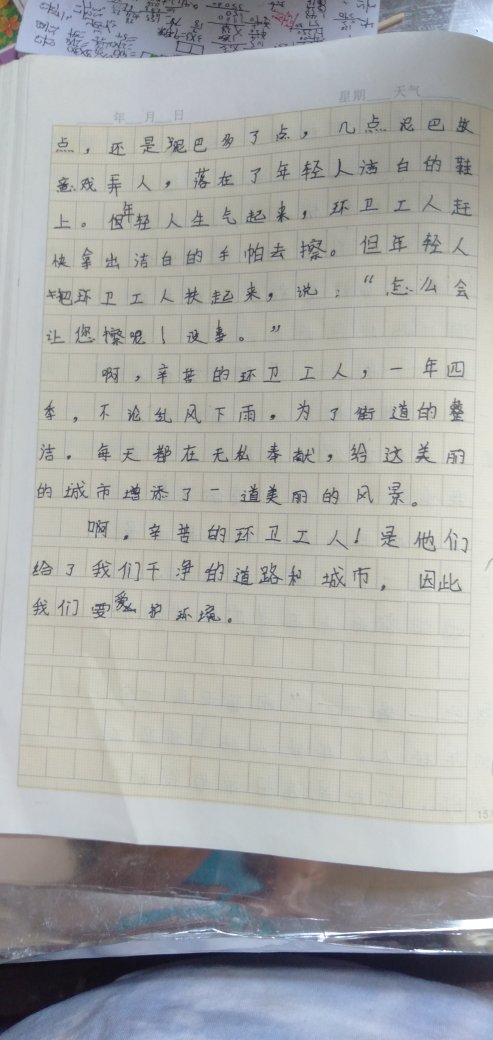 星期 天气
年 月 日
点，还是泥巴多了点，几点泥巴故
意戏弄人，落在了年轻人洁白的鞋
上。但年轻人生气起来，环卫工人赶
快拿出洁白的手帕去擦。但年轻人
把环卫工人扶起来，说：“怎么会
让您擦呢！没事。”
啊，辛苦的环卫工人，一年四
季，不论乱风下雨。为了街道的整
洁。每天都在无私奉献，给这美丽
的城市增添了一道美丽的风景。
啊。辛苦的环卫工人！是他们
给了我们干净的道路和城市，因此
我们要爱护环境。